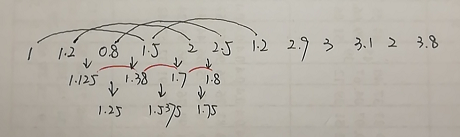 1 1.2 0.8 1.5 2 2.5 1.2 2.9 3 3.1 2 3.8
1.125 1.38 1.7 1.8
1.25 1.5375 1.75